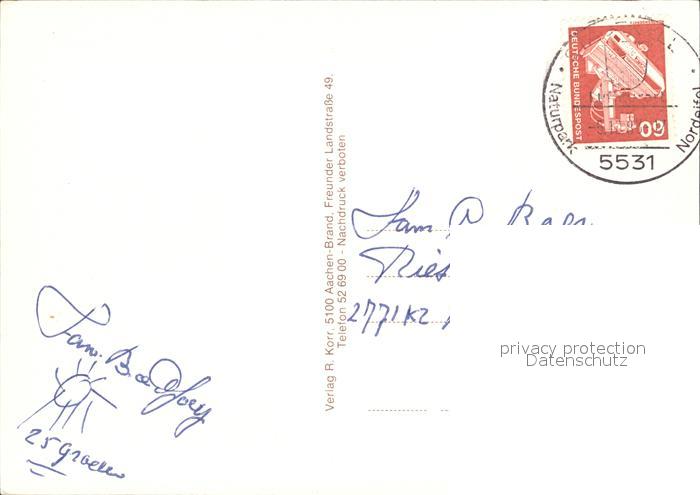 DEUTSCHE BUNDESPOST
60
Naturpark Nordeifel
5531
Verlag R. Korr, 5100 Aachen-Brand, Freunder Landstraße 49.
Telefon 52 69 00 - Nachdruck verboten
Fam.
2771 KZ
privacy protection
Datenschutz
Fam.
25 graden